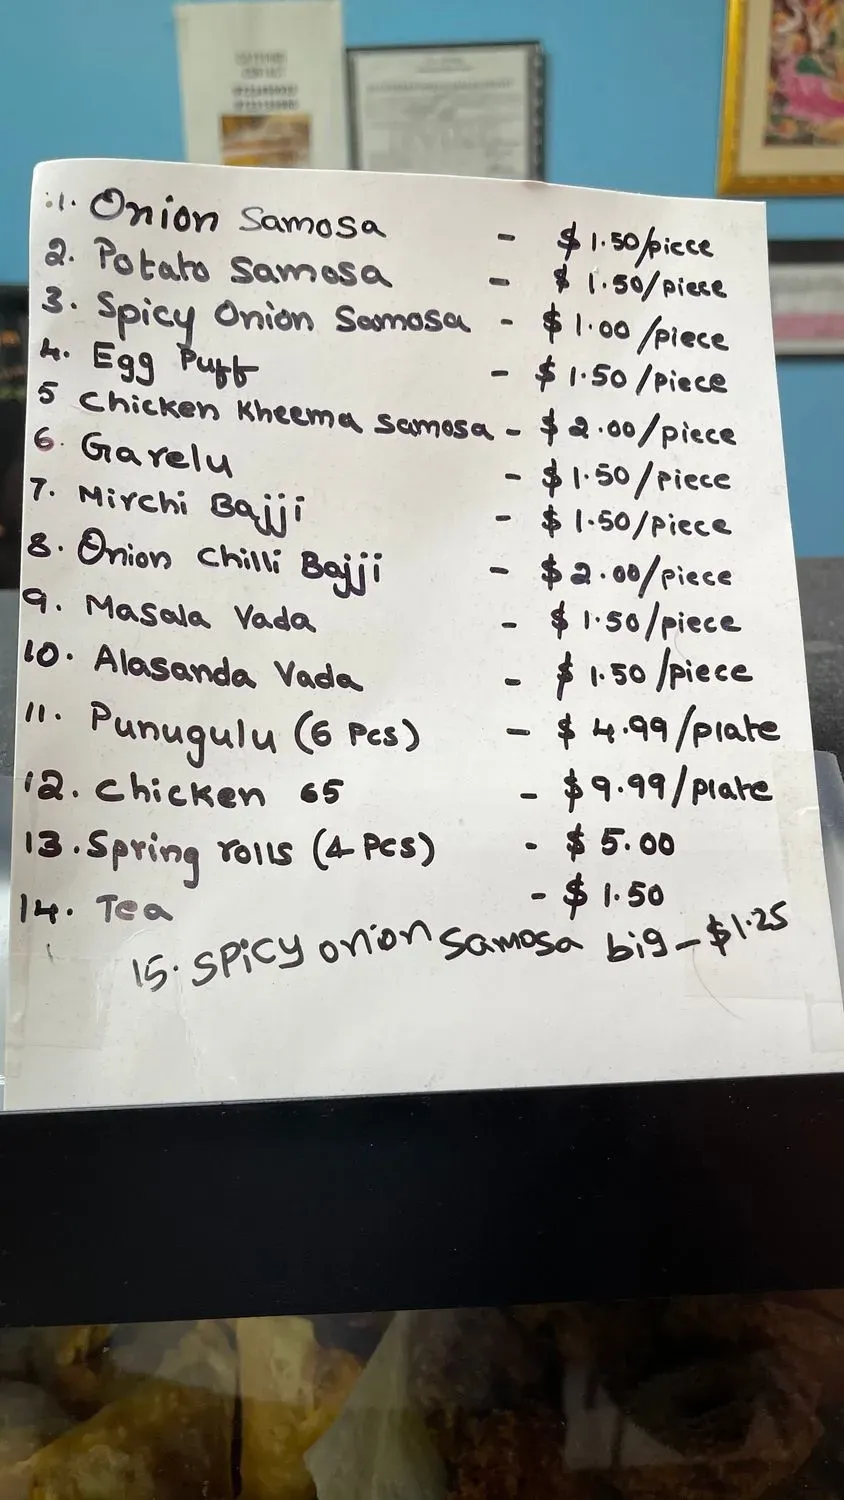 1. Onion Samosa - $1.50/piece
2. Potato Samosa - $1.50/piece
3. Spicy Onion Samosa - $1.00/piece
4. Egg Puff - $1.50/piece
5 Chicken Kheema Samosa - $2.00/piece
6. Garelu - $1.50/piece
7. Mirchi Bajji - $1.50/piece
8. Onion Chilli Bajji - $2.00/piece
9. Masala Vada - $1.50/piece
10. Alasanda Vada - $1.50/piece
11. Punugulu (6 Pcs) - $4.99/plate
12. Chicken 65 - $9.99/plate
13. Spring rolls (4 Pcs) - $5.00
14. Tea - $1.50
15. SPicy onion Samosa big - $1.25